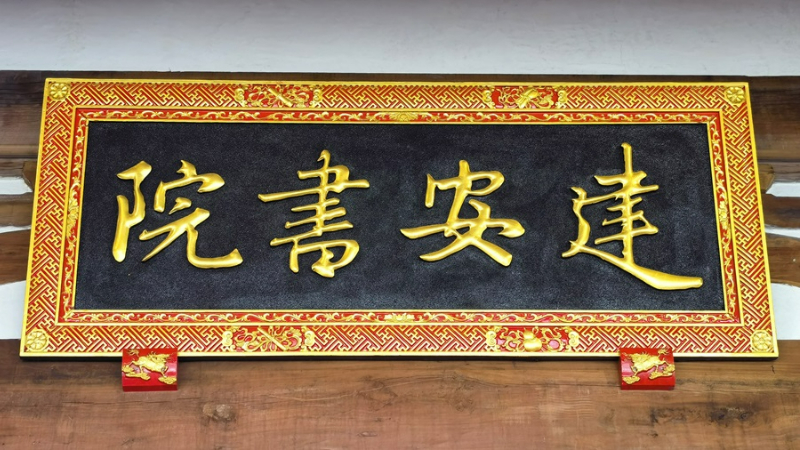 建安書院